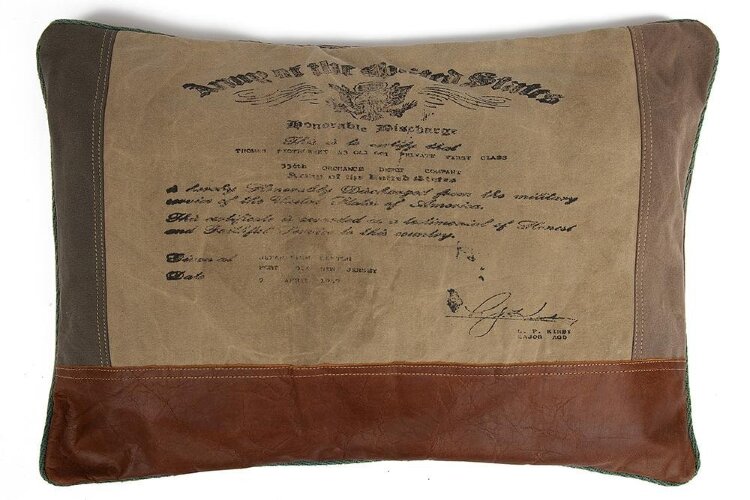 Army of the United States
Honorable Discharge
This is to certify that
THOMAS 43 041 PRIVATE FIRST CLASS
336th ORDNANCE DEPOT COMPANY
Army of the United States
is hereby Honorably Discharged from the military
service of the United States of America.
This certificate is awarded as a testimonial of Honest
and Faithful Service to this country.
Given at SEPARATION CENTER
FORT DIX NEW JERSEY
Date 9 APRIL 1947
L. F. KIRBI
MAJOR AGD